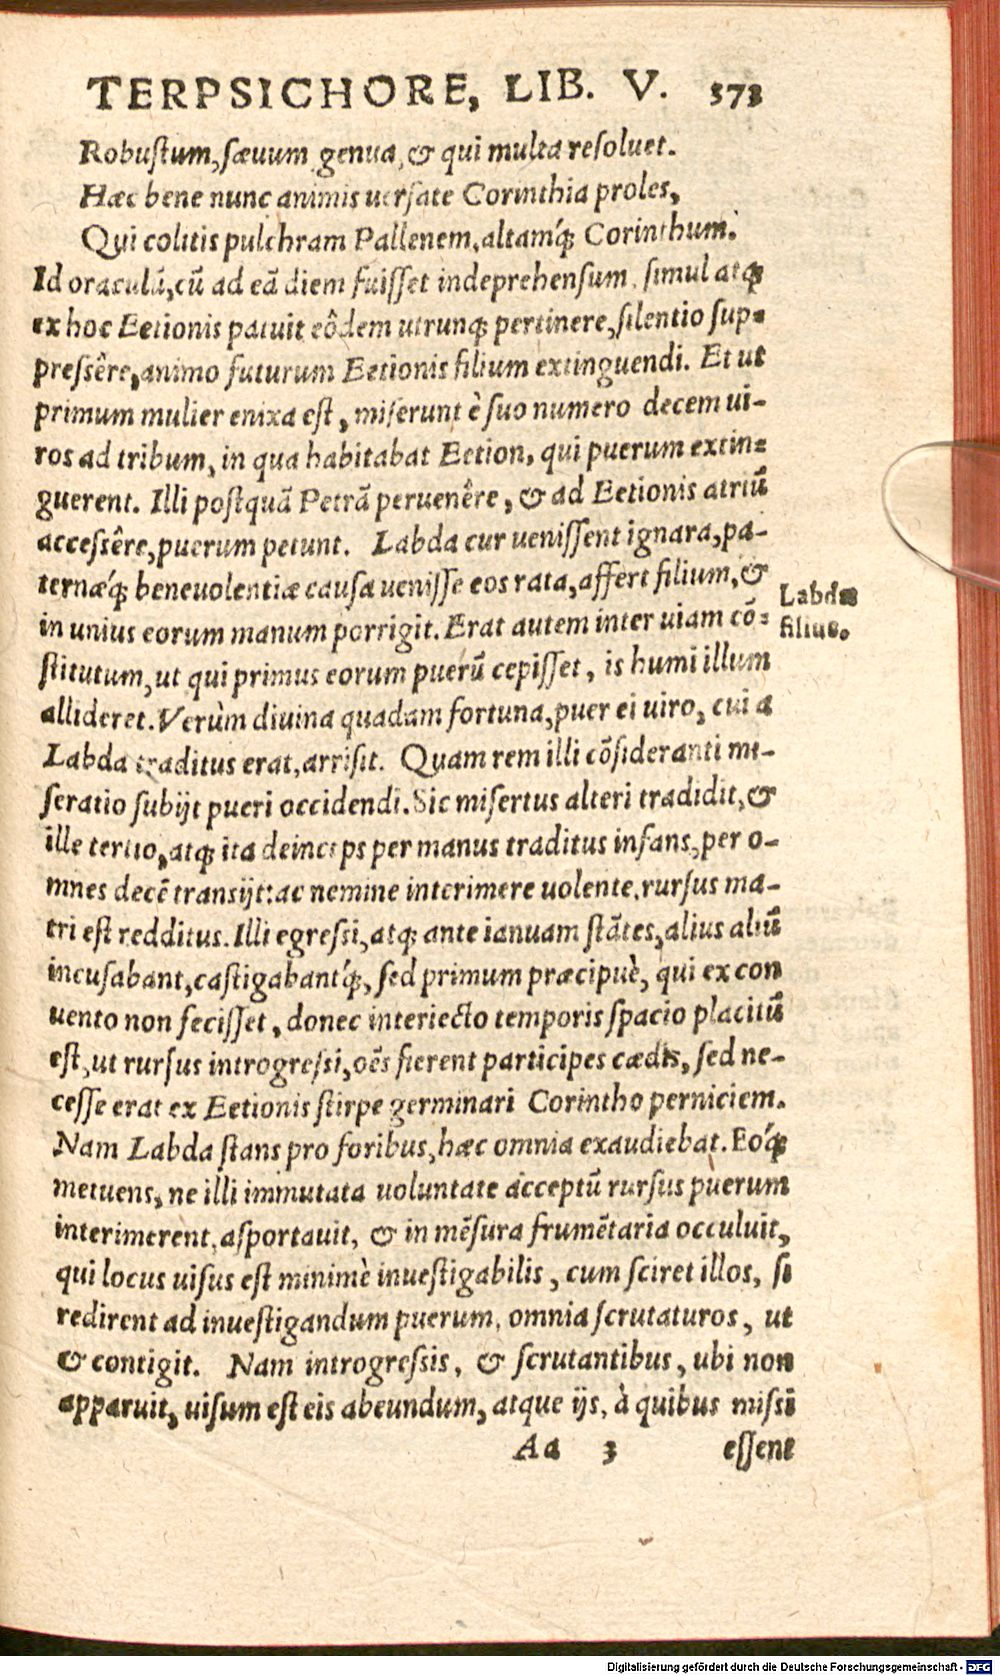 TERPSICHORE, LIB. V. 373
Robustum, sæuum genua, & qui multa resoluet.
Hæc bene nunc animis uersate Corinthia proles,
Qui colitis pulchram Pallenem, altamq́; Corinthum.
Id oraculũ, cũ ad eã diem fuisset indeprehensum, simul atq;
ex hoc Eetionis patuit eôdem utrunq; pertinere, silentio sup=
pressêre, animo futurum Eetionis filium extinguendi. Et ut
primum mulier enixa est, miserunt è suo numero decem ui-
ros ad tribum, in qua habitabat Eetion, qui puerum extin=
guerent. Illi postquã Petrã peruenêre, & ad Eetionis atriũ
accessêre, puerum petunt. Labda cur uenissent ignara, pa-
ternæq́; beneuolentiæ causa uenisse eos rata, affert filium, &
in unius eorum manum porrigit. Erat autem inter uiam cõ=
stitutum, ut qui primus eorum puerũ cepisset, is humi illum
allideret. Verùm diuina quadam fortuna, puer ei uiro, cui a
Labda traditus erat, arrisit. Quam rem illi cõsideranti mi-
seratio subijt pueri occidendi. Sic misertus alteri tradidit, &
ille tertio, atq; ita deinceps per manus traditus infans, per o-
mnes decẽ transijt: ac nemine interimere uolente, rursus ma-
tri est redditus. Illi egressi, atq; ante ianuam stãtes, alius aliũ
incusabant, castigabantq́;, sed primum præcipuè, qui ex con
uento non fecisset, donec interiecto temporis spacio placitũ
est, ut rursus introgressi, oẽs fierent participes cædis, sed ne-
cesse erat ex Eetionis stirpe germinari Corintho perniciem.
Nam Labda stans pro foribus, hæc omnia exaudiebat. Eoq́;
metuens, ne illi immutata uoluntate acceptũ rursus puerum
interimerent, asportauit, & in mẽsura frumẽtaria occuluit,
qui locus uisus est minimè inuestigabilis, cum sciret illos, si
redirent ad inuestigandum puerum, omnia scrutaturos, ut
& contigit. Nam introgressis, & scrutantibus, ubi non
apparuit, uisum est eis abeundum, atque ijs, à quibus missi
Aa 3 essent
Labdæ
filius.
Digitalisierung gefördert durch die Deutsche Forschungsgemeinschaft - DFG